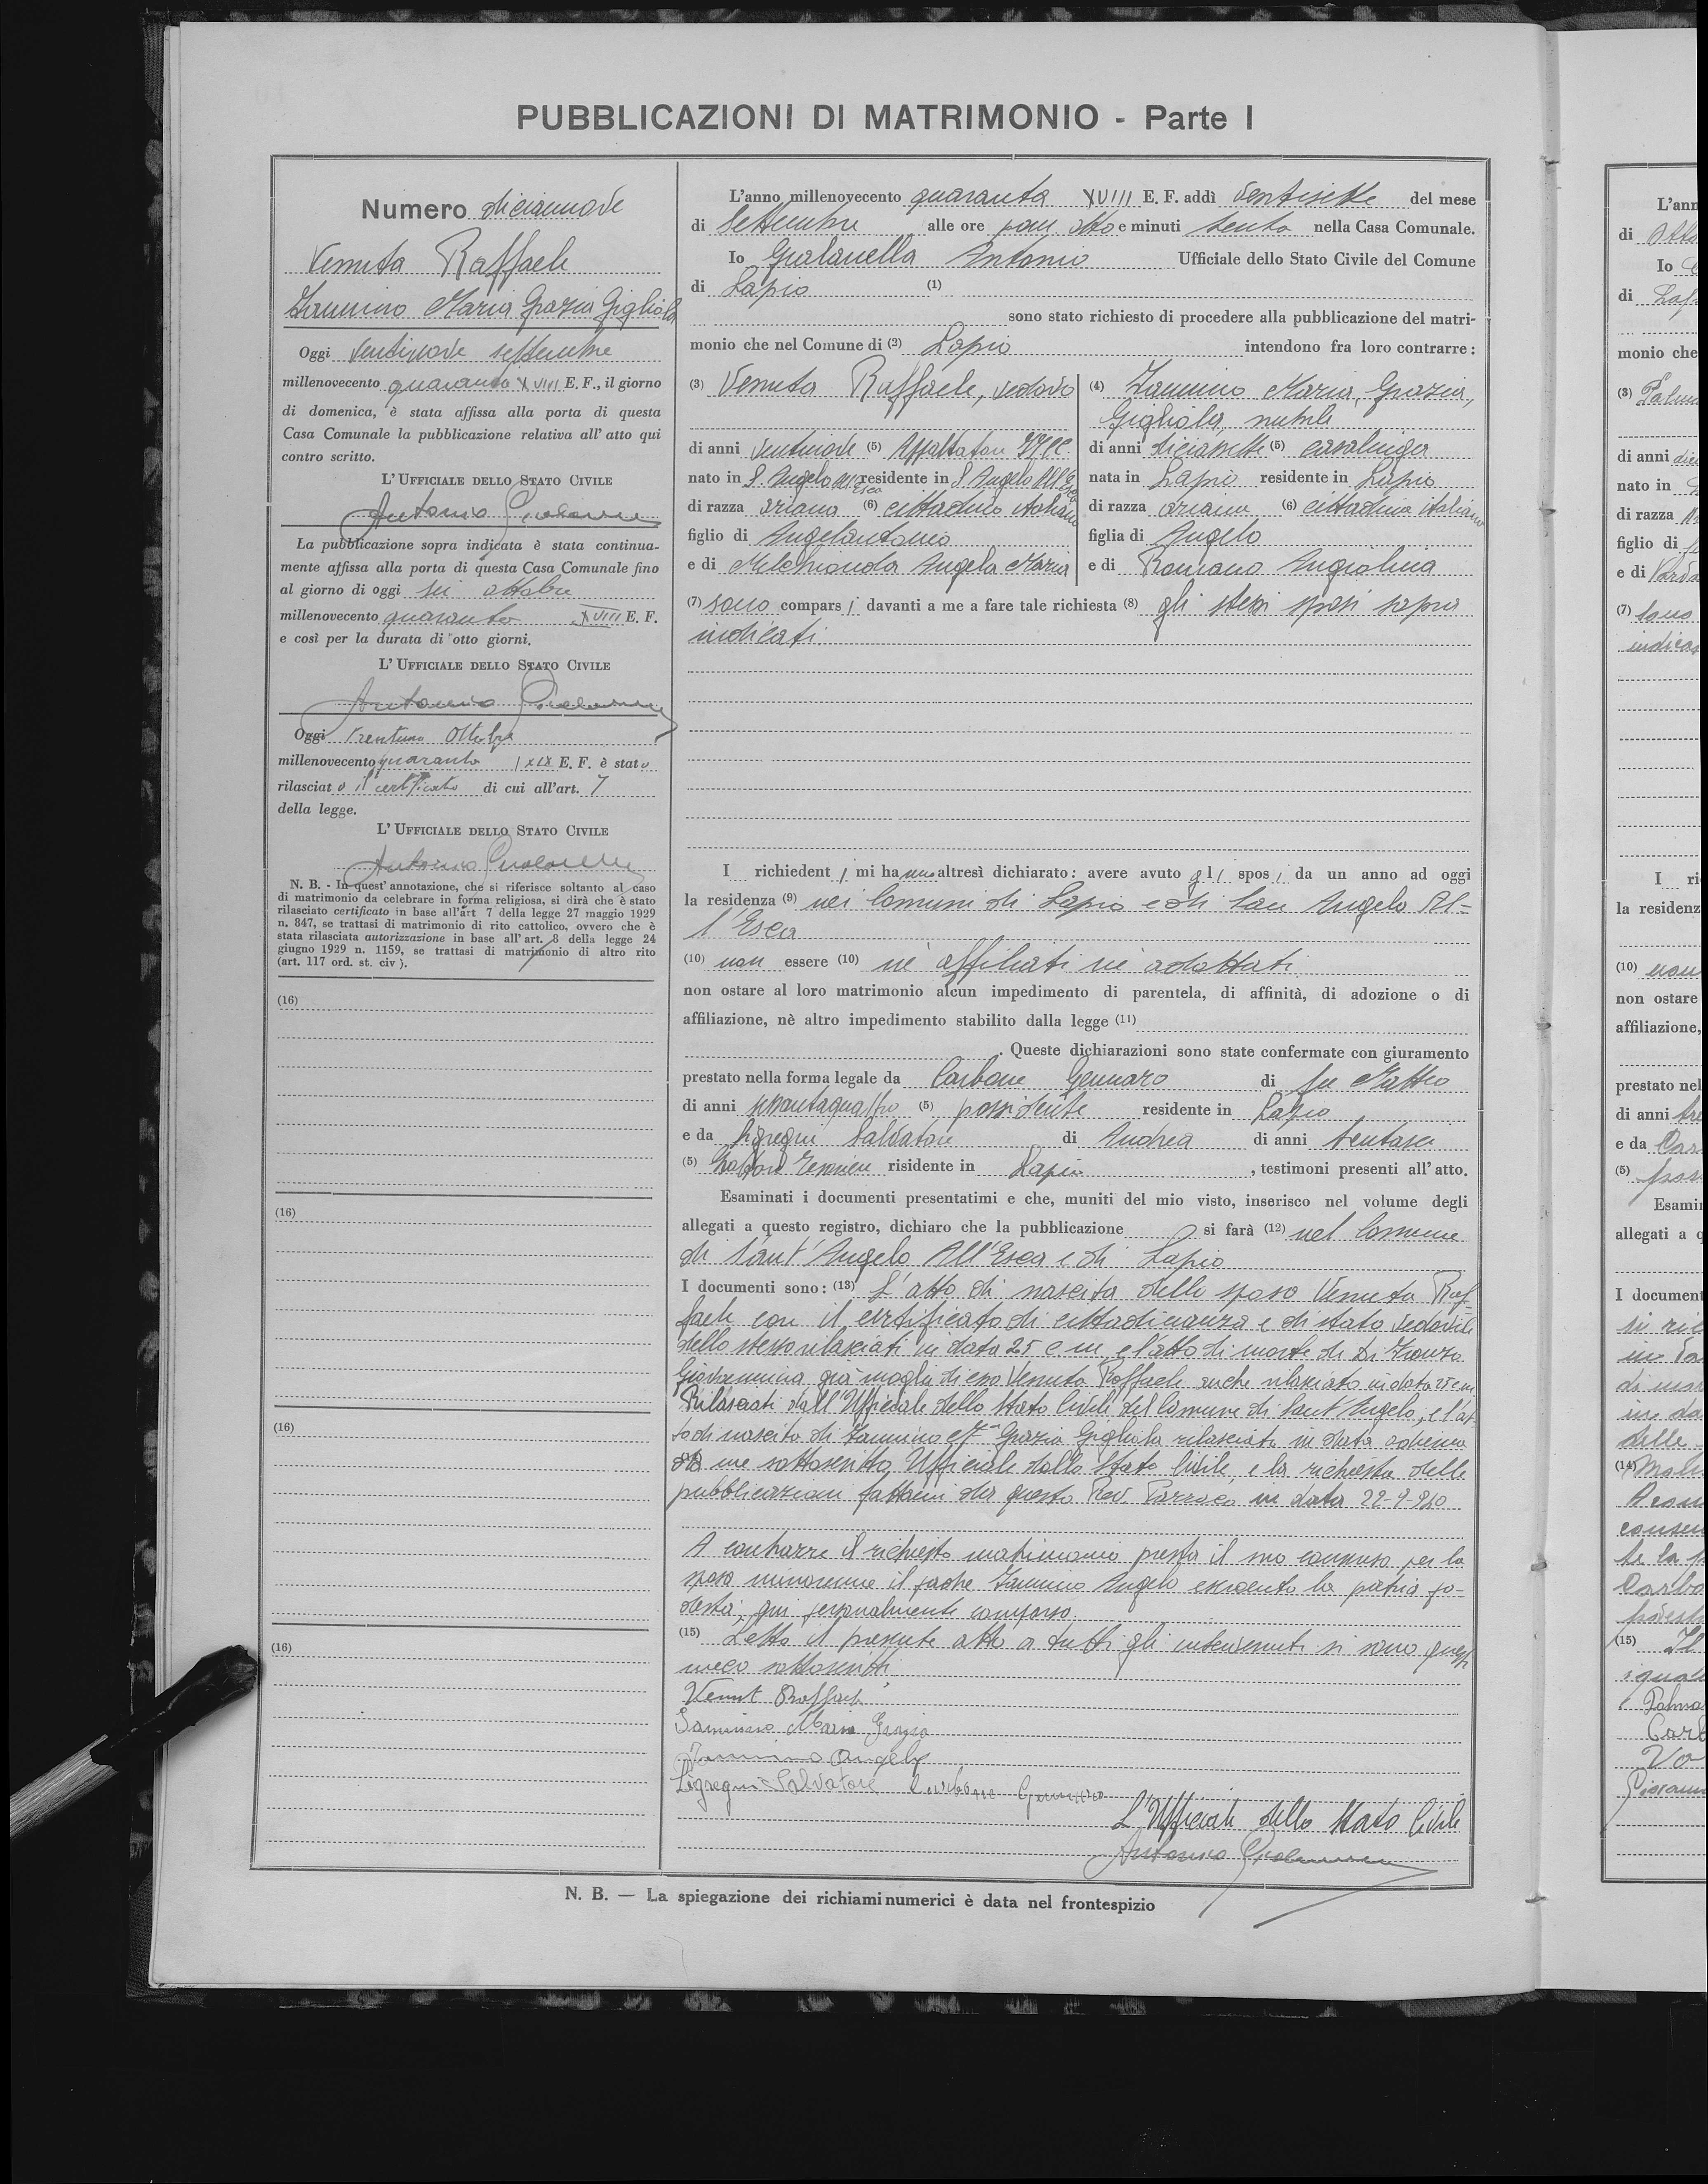 PUBBLICAZIONI DI MATRIMONIO - Parte I
Numero diciannove
Venuta Raffaele
Iannino Maria Grazia Gigliola
Oggi ventinove settembre
millenovecento quaranta XVIII E. F., il giorno
di domenica, è stata affissa alla porta di questa
Casa Comunale la pubblicazione relativa all' atto qui
contro scritto.
L'UFFICIALE DELLO STATO CIVILE
Antonio
La pubblicazione sopra indicata è stata continua-
mente affissa alla porta di questa Casa Comunale fino
al giorno di oggi sei ottobre
millenovecento quaranta XVIII E. F.
e così per la durata di otto giorni.
L' UFFICIALE DELLO STATO CIVILE
Antonio
Oggi trentuno Ottobre
millenovecento quaranta XIX E. F. è stato
rilasciato il certificato di cui all'art. 7
della legge.
L' UFFICIALE DELLO STATO CIVILE
Antonio
N. B. - In quest' annotazione, che si riferisce soltanto al caso
di matrimonio da celebrare in forma religiosa, si dirà che è stato
rilasciato certificato in base all'art 7 della legge 27 maggio 1929
n. 847, se trattasi di matrimonio di rito cattolico, ovvero che è
stata rilasciata autorizzazione in base all' art. 8 della legge 24
giugno 1929 n. 1159, se trattasi di matrimonio di altro rito
(art. 117 ord. st. civ ).
(16)
(16)
(16)
(16)
L'anno millenovecento quaranta XVIII E. F. addì ventisette del mese
di Settembre alle ore pom. otto e minuti trenta nella Casa Comunale.
Io Antonio Ufficiale dello Stato Civile del Comune
di Lapio (1)
sono stato richiesto di procedere alla pubblicazione del matri-
monio che nel Comune di (2) Lapio intendono fra loro contrarre:
(3) Venuta Raffaele, vedovo
di anni ventinove (5)
nato in S. Angelo all'Esca residente in S. Angelo All'Esca
di razza ariana (6) cittadino italiano
figlio di Angelantonio
e di Melchionda Angela Maria
(4) Iannino Maria, Grazia,
Gigliola, nubile
di anni diciassette (5) casalinga
nata in Lapio residente in Lapio
di razza ariana (6) cittadina italiana
figlia di Angelo
e di Romano Angiolina
(7) sono comparsi davanti a me a fare tale richiesta (8) gli stessi sposi sopra
indicati.
I richiedenti mi hanno altresì dichiarato: avere avuto gli sposi da un anno ad oggi
la residenza (9) nei Comuni di Lapio e di San Angelo Al-
l'Esca
(10) non essere (10) nè affiliati nè adottati
non ostare al loro matrimonio alcun impedimento di parentela, di affinità, di adozione o di
affiliazione, nè altro impedimento stabilito dalla legge (11)
. Queste dichiarazioni sono state confermate con giuramento
prestato nella forma legale da Carbone Gennaro di fu Matteo
di anni sessantaquattro (5) possidente residente in Lapio
e da Salvatore di Andrea di anni trentasei
(5) residente in Lapio , testimoni presenti all' atto.
Esaminati i documenti presentatimi e che, muniti del mio visto, inserisco nel volume degli
allegati a questo registro, dichiaro che la pubblicazione si farà (12) nel Comune
di Sant'Angelo All'Esca e di Lapio
I documenti sono: (13) L'atto di nascita dello sposo Venuta Raf-
faele con il certificato di cittadinanza e di stato vedovile
dello stesso rilasciati in data 25 c. m. e l'atto di morte di Di
già moglie di esso Venuta Raffaele anche rilasciato in data 25 c m
Rilasciati dall'Ufficiale dello Stato Civile del Comune di Sant'Angelo, e l'at-
to di nascita di Iannino Mª Grazia Gigliola rilasciato in data odierna
da me sottoscritto Ufficiale dello Stato Civile e la richiesta delle
pubblicazioni fattami da questo Rev. Parroco in data 22-9-940
A contrarre il richiesto matrimonio presta il suo consenso per la
sposa minorenne il padre Iannino Angelo esercente la patria po-
destà, qui personalmente comparso.
(15) Letto il presente atto a tutti gli intervenuti si sono questi
meco sottoscritti
Venut Raffaele
Iannino Maria Grazia
Iannino Angelo
Salvatore Carbone Gennaro
L'Ufficiale dello Stato Civile
Antonio
N. B. — La spiegazione dei richiami numerici è data nel frontespizio